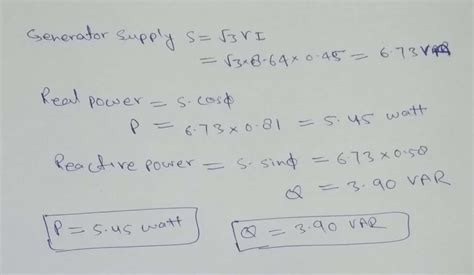 Generator Supply S = √3 V I
= √3×8.64×0.45 = 6.73 VA
Real power = S.cosϕ
P = 6.73×0.81 = 5.45 watt
Reactive power = S.sinϕ = 6.73×0.58
Q = 3.90 VAR
P = 5.45 watt
Q = 3.90 VAR